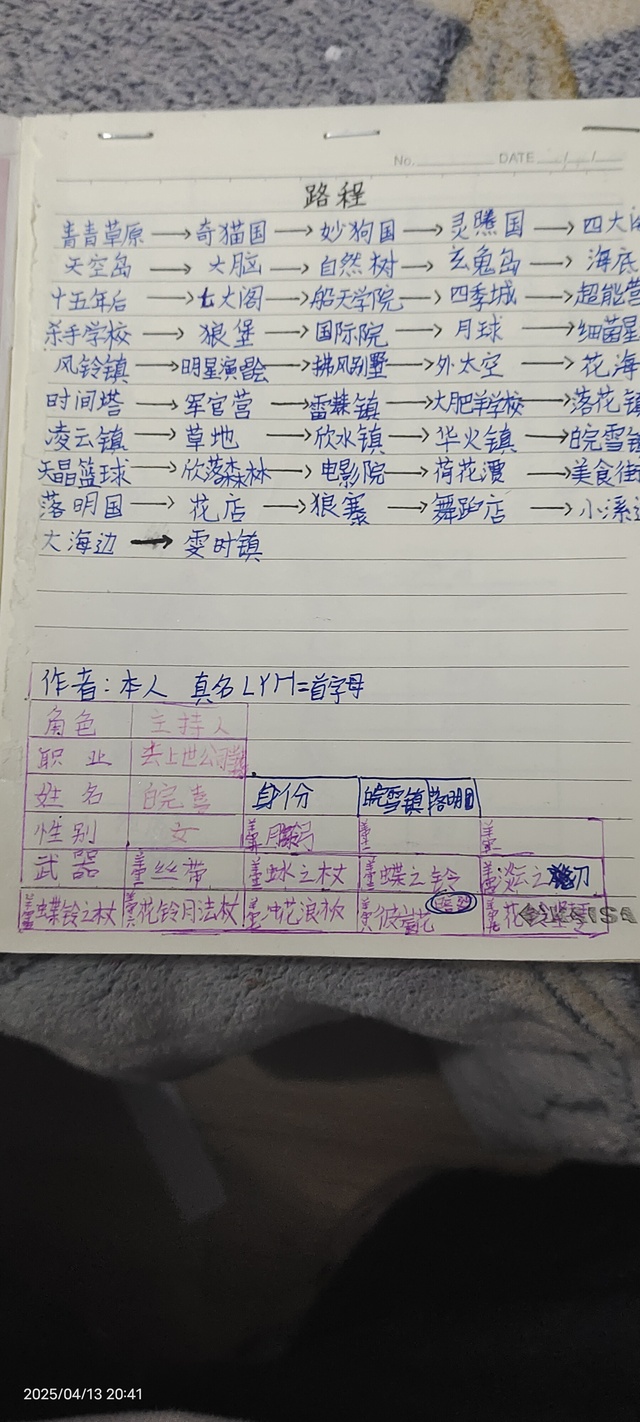 No. DATE / /
路程
青青草原→奇猫国→妙狗国→灵腾国→四大
天空岛→大脑→自然树→玄兔岛→海底
十五年后→七大阁→船天学院→四季城→超能营
杀手学校→狼堡→国际院→月球→细菌星
风铃镇→明星演唱会→拂风别墅→外太空→花海
时间塔→军官营→雷蝶镇→大肥羊学校→落花镇
凌云镇→草地→欣水镇→华火镇→皖雪镇
天晶篮球→欣落森林→电影院→荷花潭→美食街
落明国→花店→狼寨→舞蹈店→小溪边
大海边→雯时镇
作者:本人 真名LYH=首字母
角色 主持人
职业
姓名 皖 身份 皖雪镇 落明国
性别 女
武器 丝带 冰之杖 蝶之铃 之刀
蝶铃之杖 花铃月法杖 花浪板
2025/04/13 20:41